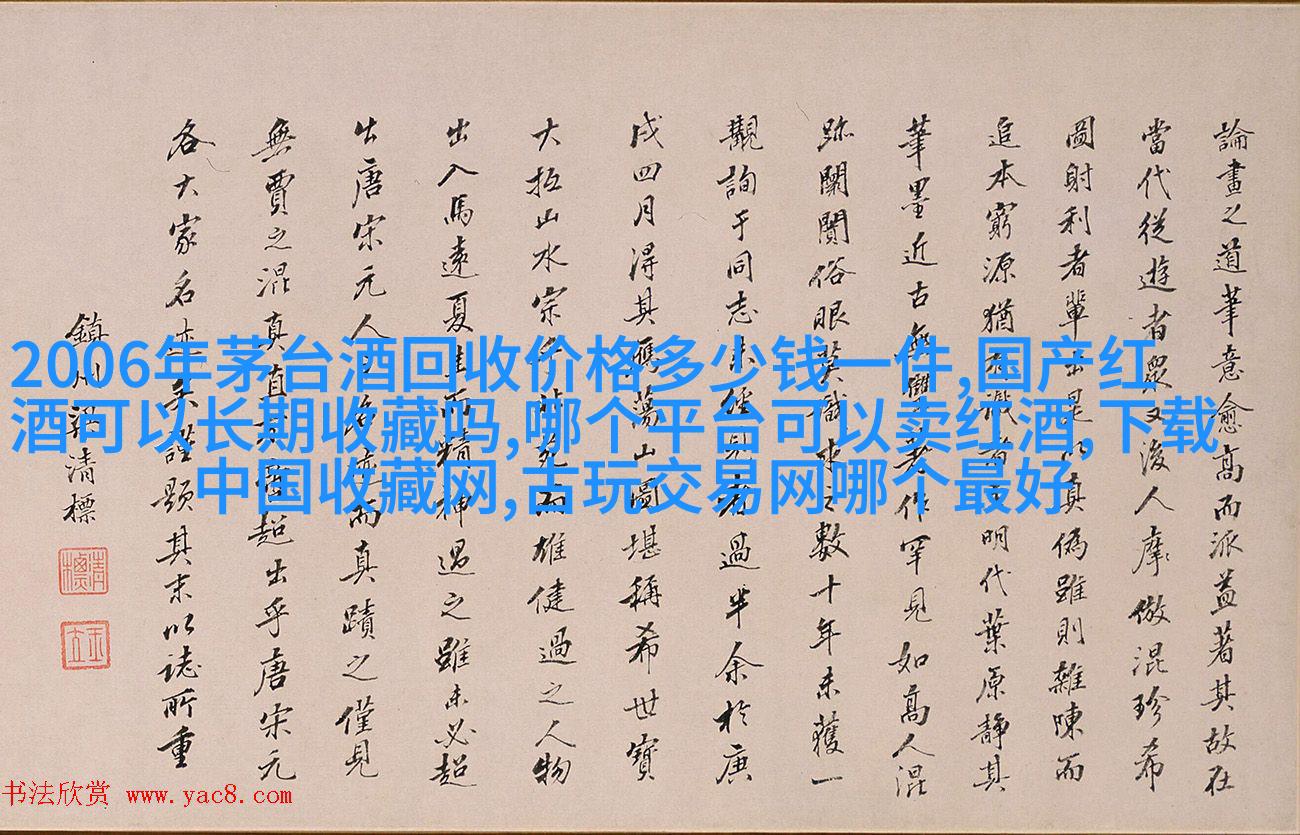 論畫之道筆意愈高而派益著其故在
當代從遊者眾又後人摩倣混珍希
圖射利者輩出是以真僞雖則雜陳而
追本窮源猶有識者明代葉原靜其
筆墨近古無雙作罕見如高人混
跡闤闠俗眼莫識求之數十年未獲一
觀詢于同志未經見者過半余於庚
戌四月得其雁蕩山圖堪稱希世寶
大抵山水宗而雄健過之人物
出入馬遠夏圭而精神過之雖未必超
出唐宋元人之名而真蹟之僅見
無賈之混真超出乎唐宋元
各大家名迹矣謹題其末以誌所重
鎮州梁清標
清標
玉立
2006年茅台酒回收价格多少钱一件,国产红
酒可以长期收藏吗,哪个平台可以卖红酒,下载
中国收藏网,古玩交易网哪个最好
书法欣赏 www.yac8.com